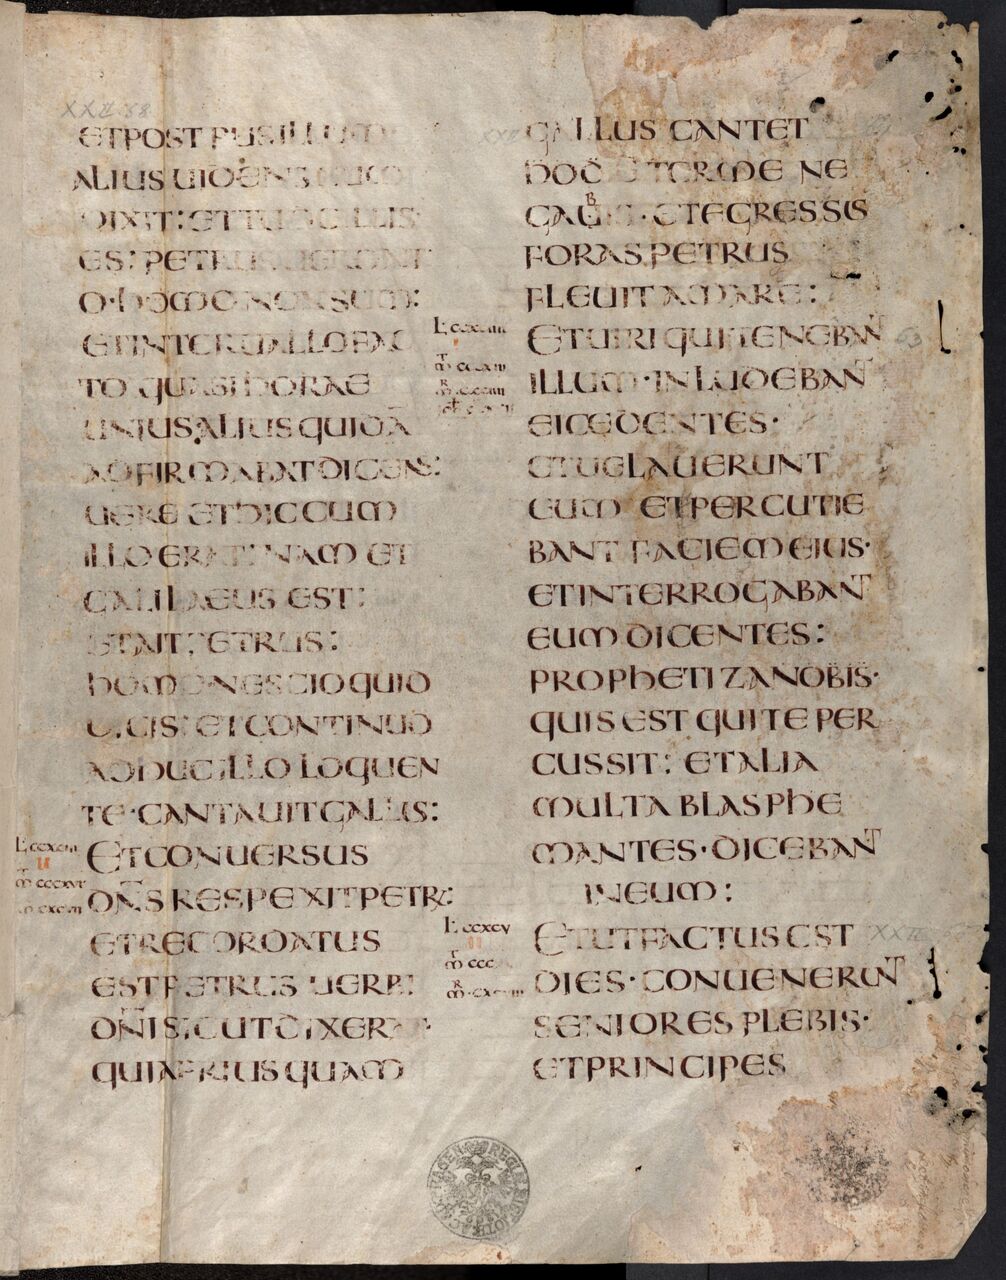 XXII 58
ET POST PUSILLUM
ALIUS UIDENS EUM
DIXIT: ET TU DE ILLIS
ES: PETRUS UERO AIT
O·hOMO NON SUM:
ET INTERUALLO FAC
TO QUASI hORAE
UNIUS·ALIUS QUIDĀ
ADFIRMABAT DICENS:
UERE ET hIC CUM
ILLO ERAT: NAM ET
GALILAEUS EST:
ET AIT PETRUS:
hOMO NESCIO QUID
DICIS: ET CONTINUO
ADhUC ILLO LOQUEN
TE·CANTAUIT GALLUS:
ET CONUERSUS
DN̄S RESPEXIT PETRŪ:
ET RECORDATUS
EST PETRUS UERBI
DN̄I SICUT DIXERAT·
QUIA PRIUS QUAM
GALLUS CANTET
hODIE TER ME NE
GABIS·ET EGRESSUS
FORAS PETRUS
FLEUIT AMARE:
ET UIRI QUI TENEBANT
ILLUM·INLUDEBANT
EI CEDENTES·
ET UELAUERUNT
EUM ET PERCUTIE
BANT FACIEM EIUS·
ET INTERROGABANT
EUM DICENTES:
PROPhETIZA NOBIS·
QUIS EST QUI TE PER
CUSSIT: ET ALIA
MULTA BLASPhE
MANTES·DICEBANT
IN EUM:
ET UT FACTUS EST
DIES·CONUENERUNT
SENIORES PLEBIS·
ET PRINCIPES
L ccxciii
II
m̄ cccxvi
L ccxcv
II